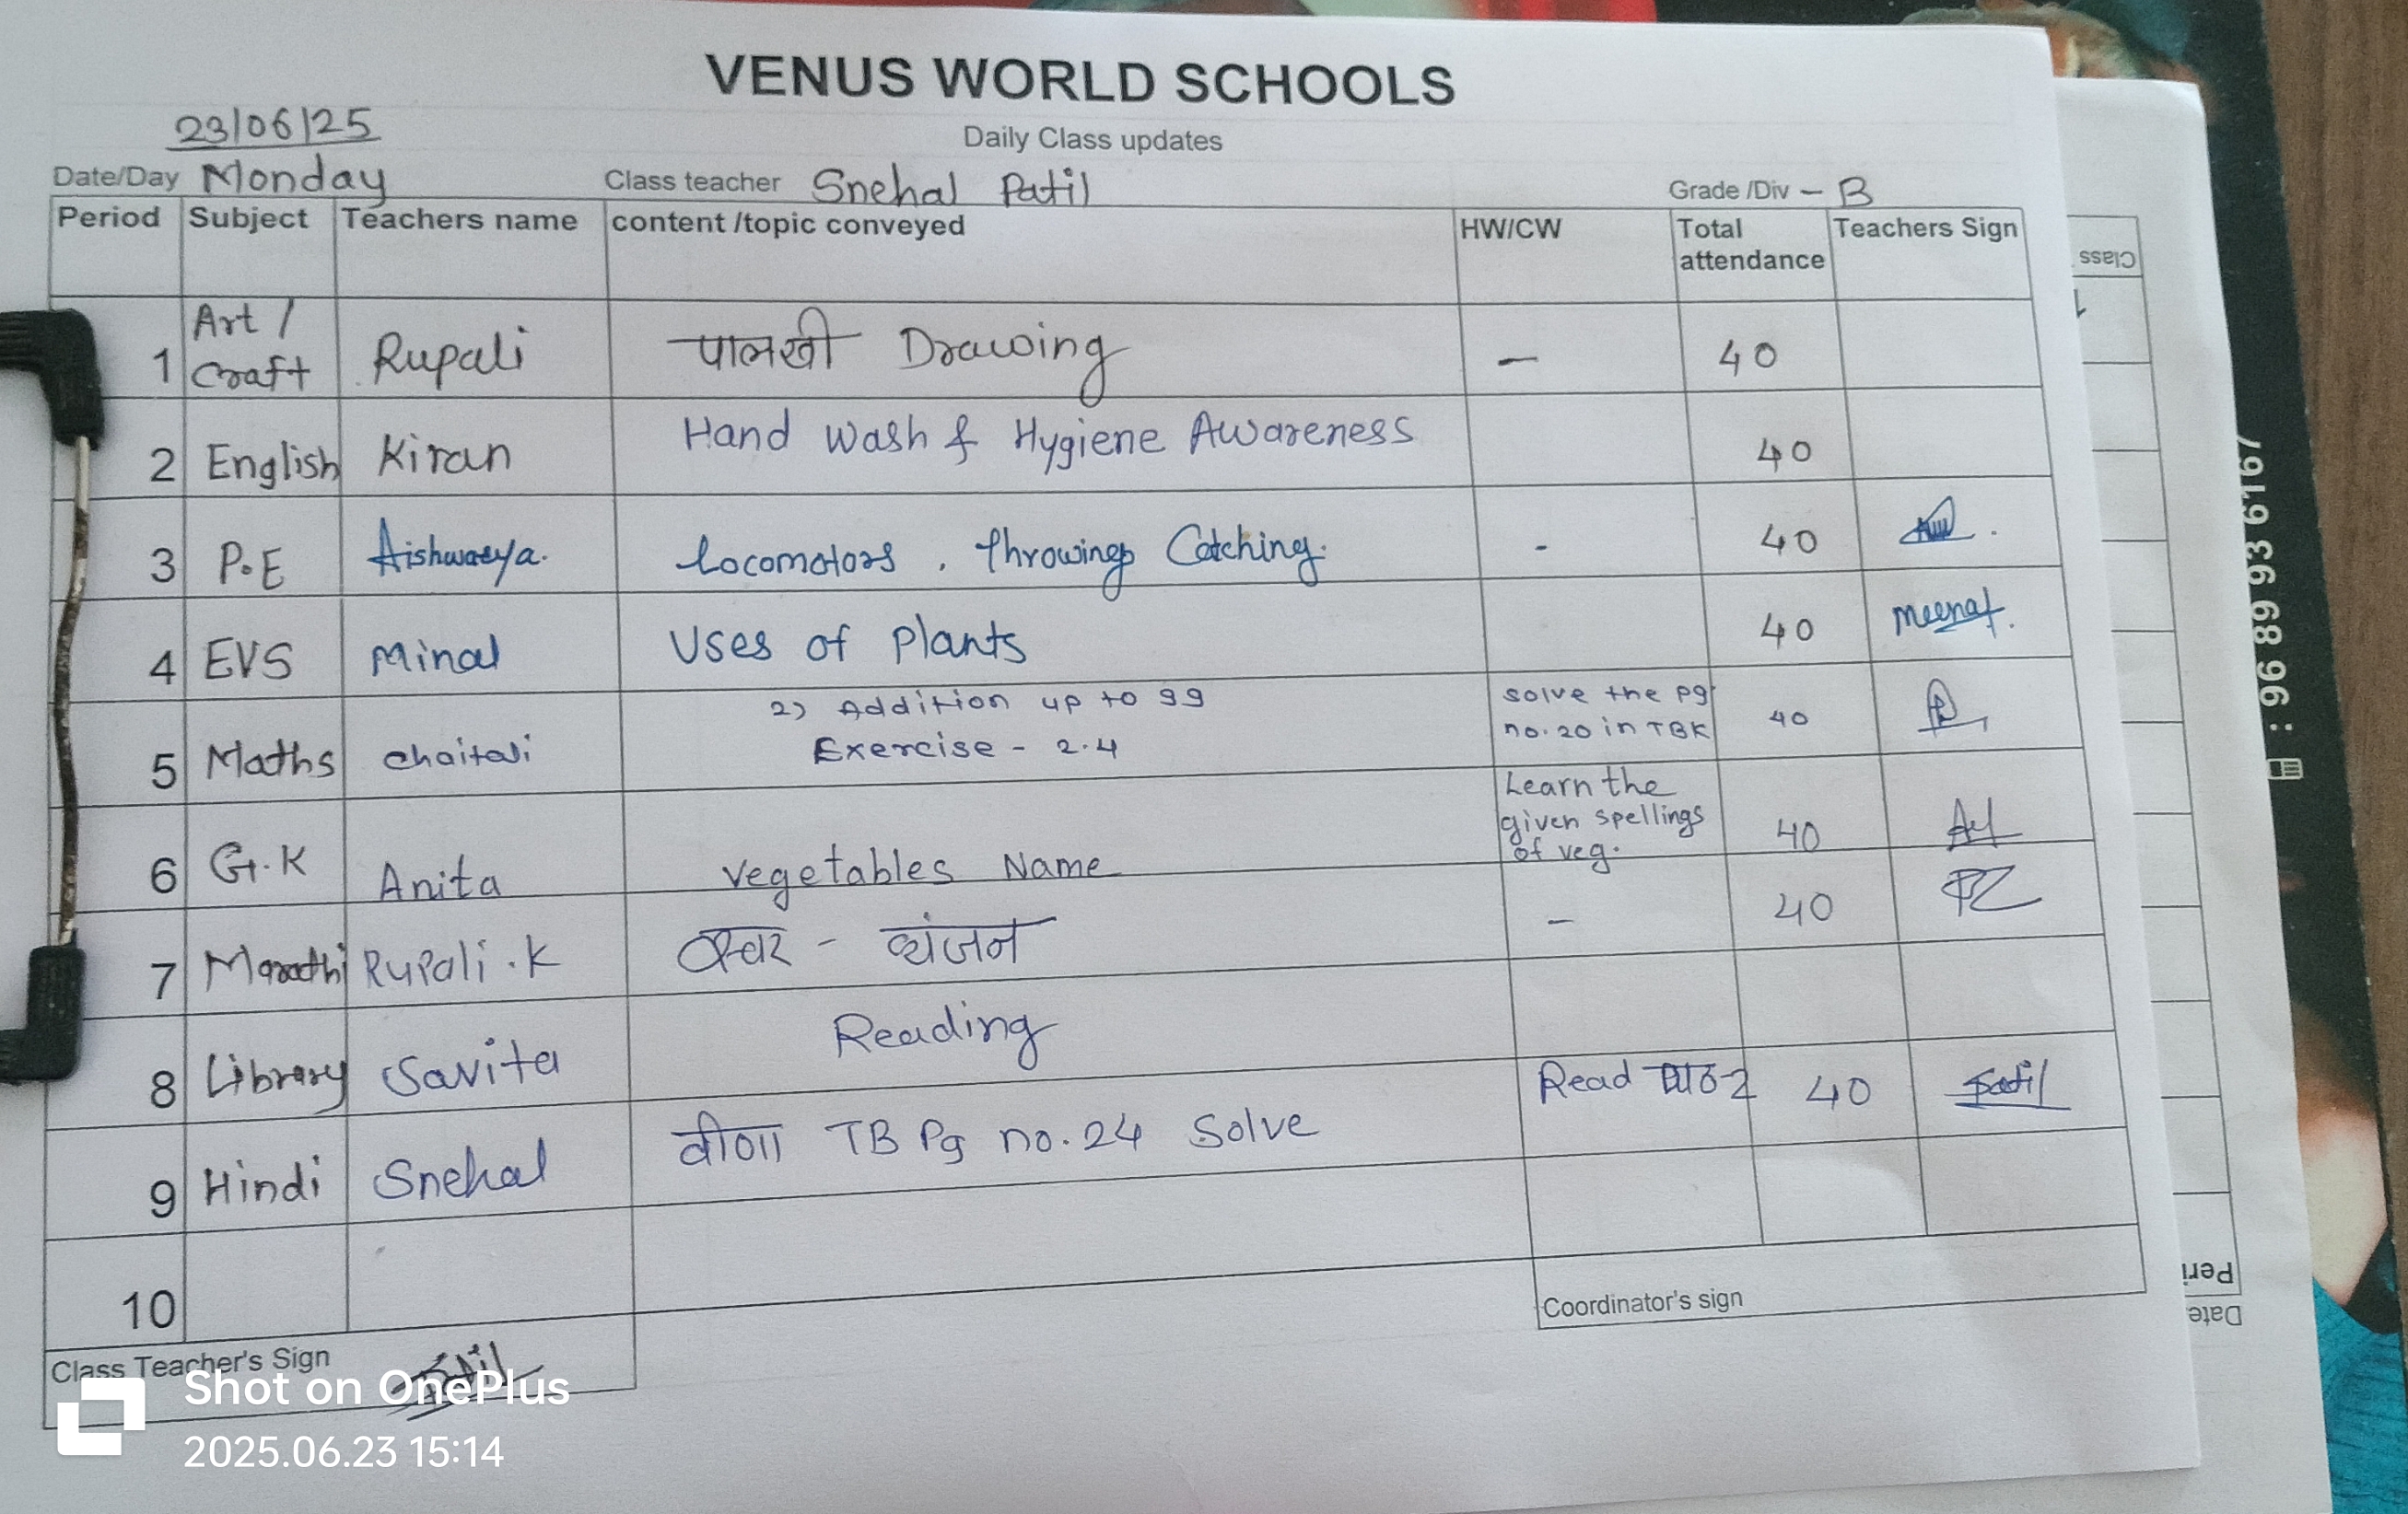 VENUS WORLD SCHOOLS
Daily Class updates
23/06/25
Date/Day Monday Class teacher Snehal Patil Grade /Div – B
Period Subject Teachers name content /topic conveyed HW/CW Total attendance Teachers Sign
1 Art / Craft Rupali पालखी Drawing – 40
2 English Kiran Hand Wash & Hygiene Awareness 40
3 P.E Aishwarya. Locomotors, Throwing Catching. - 40
4 EVS Minal Uses of Plants 40
5 Maths Chaitali 2) Addition up to 99 solve the pg 40
Exercise - 2.4 no. 20 in TBK
6 G.K Anita Vegetables Name Learn the 40
given spellings
of veg.
7 Marathi Rupali . K स्वर - व्यंजन – 40
8 Library Savita Reading
9 Hindi Snehal वीणा TB Pg no. 24 Solve Read पाठ-2 40 Patil
10
Class Teacher's Sign Coordinator's sign
Shot on OnePlus
2025.06.23 15:14
: 96 89 93 6167
Class
Peri
Date